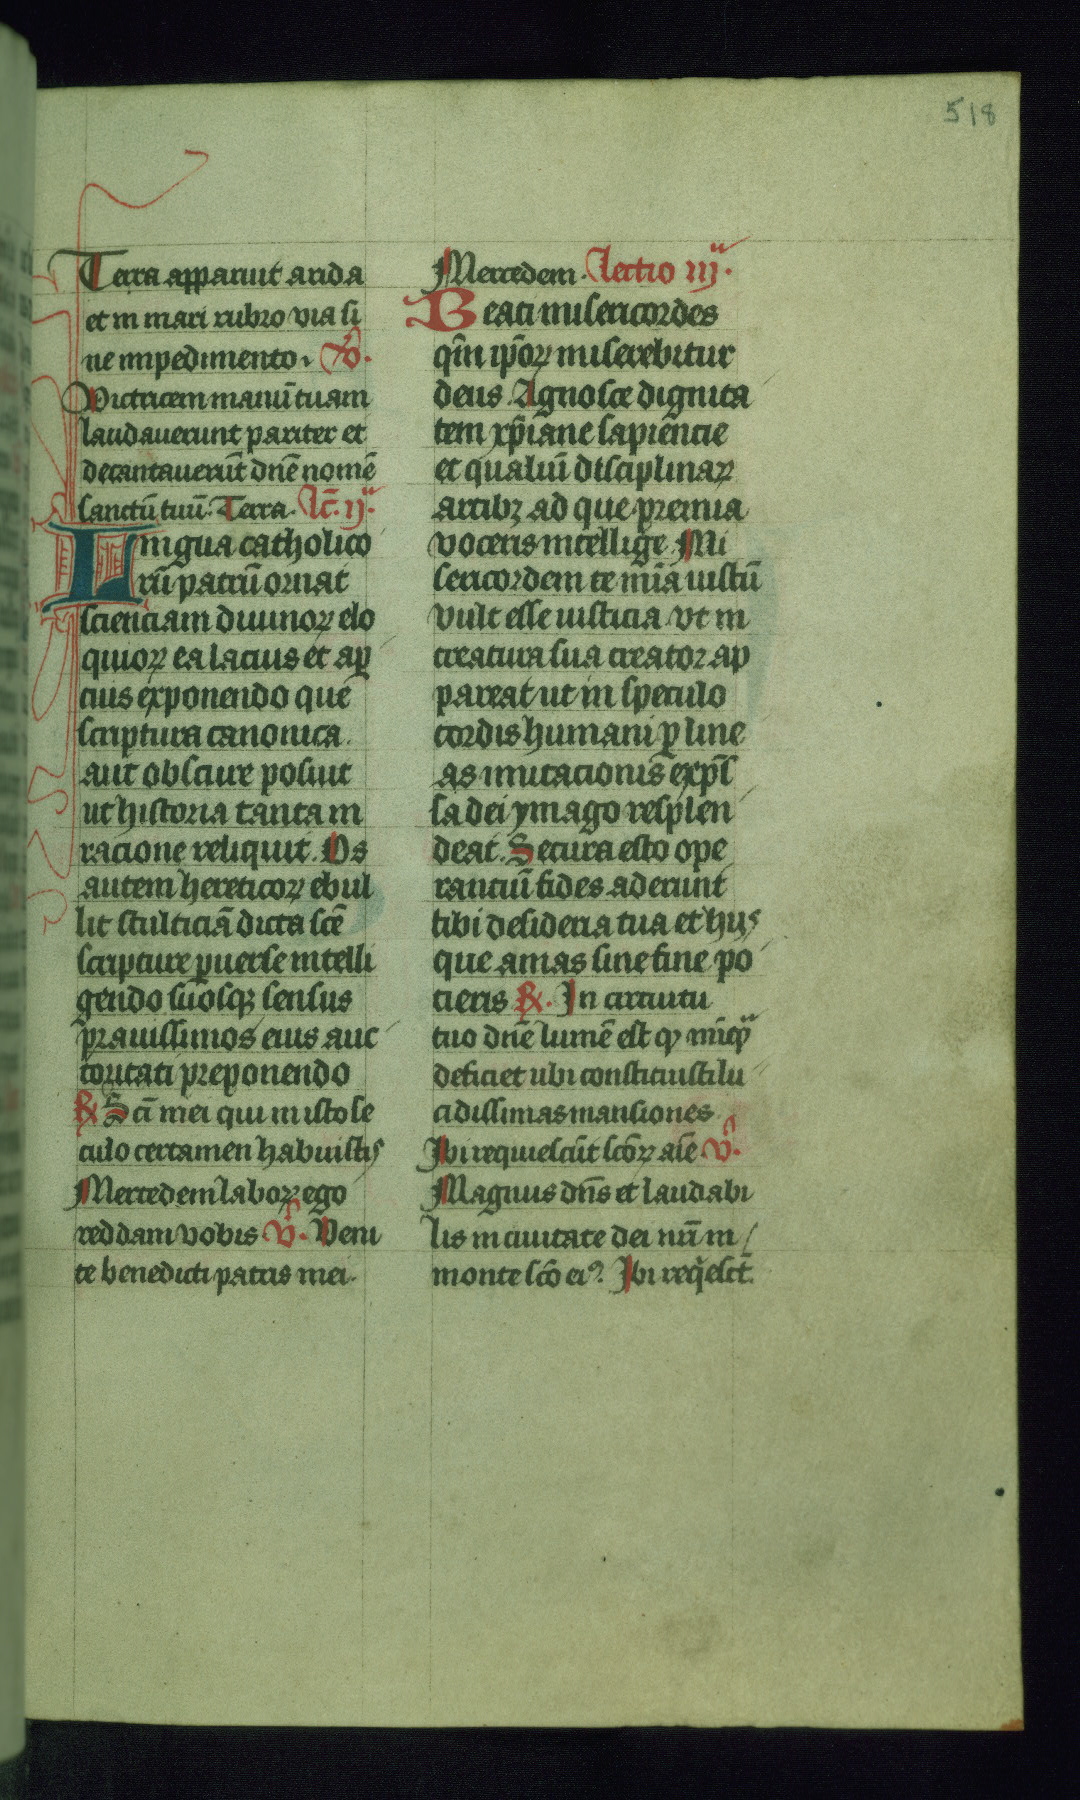 518
Terra apparuit arida
et in mari rubro via si
ne impedimento. V̓.
Victricem manū tuam
laudauerunt pariter et
decantauerūt dn̄e nomē
sanctū tuū. Terra. Lc̄. ijª.
Lingua catholico
rū patrū ornat
scienciam diuinoꝝ elo
quioꝝ ea lacius et aꝑ
cius exponendo que
scriptura canonica
aut obscure posuit
ut historia tantam
racione reliquit. Os
autem hereticoꝝ ebul
lit stulticiā dicta scē
scripture ꝑuerse intelli
gendo suosqꝫ sensus
prauissimos eius auc
toritati preponendo
℟ Sc̄i mei qui in isto se
culo certamen habuistis
Mercedem laboꝝ ego
reddam vobis V̓. Veni
te benedicti patris mei.
Mercedem. Lectio iijª.
Beati misericordes
qm̄ ip̄oꝝ miserebitur
deus. Agnosce dignita
tem xp̄iane sapiēncie
et qualiū disciplinaꝝ
artibꝫ ad que premia
voceris intellige. Mi
sericordem te mīa iustū
vult esse iusticia vt in
creatura sua creator ap
pareat ut in speculo
cordis humani ꝑ line
as imitacionis exp̄s
sa dei ymago resplen
deat. Secura esto ope
ranciū fides aderunt
tibi desideria tua et hijs
que amas sine fine po
cieris ℟. In circuitu
tuo dn̄e lumē est ꝙ nūqª
deficiet ubi constituisti lu
cidissimas mansiones
Ibi requiescūt scōꝝ aīe V̓.
Magnus dn̄s et laudabi
lis in ciuitate dei nr̄i in
monte scō eiꝰ. Ibi req̄esct̄.